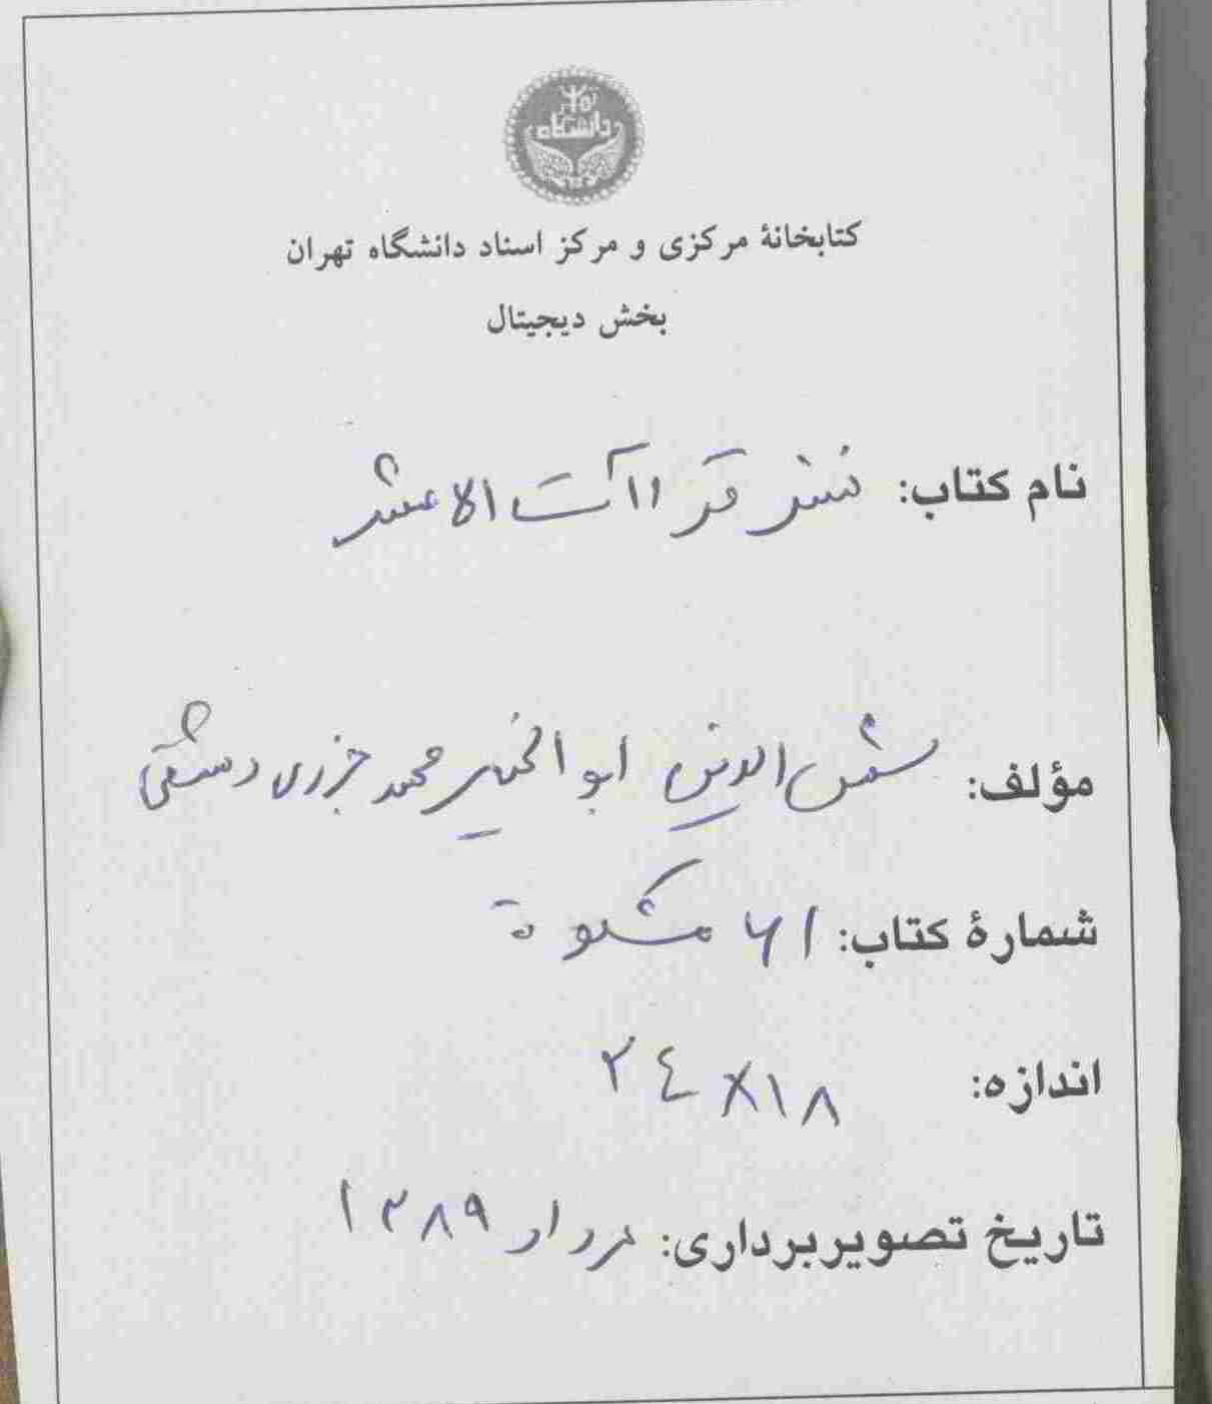 دانشگاه تهران
کتابخانهٔ مرکزی و مرکز اسناد دانشگاه تهران
بخش دیجیتال
نام کتاب: نشر قراآت الاعشر
مؤلف: شمس الدین ابو الخیر محمد جزری دمشقی
شمارهٔ کتاب: ۶۱ مشکوة
اندازه: ۱۸×۲٤
تاریخ تصویربرداری: مرداد ۱۳۸۹